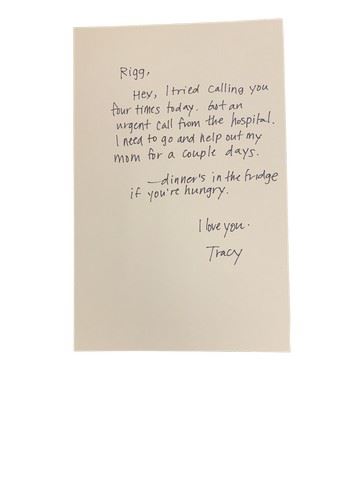 Rigg,
Hey, I tried calling you
four times today. Got an
urgent call from the hospital.
I need to go and help out my
mom for a couple days.
—dinner's in the fridge
if you're hungry.
I love you.
Tracy